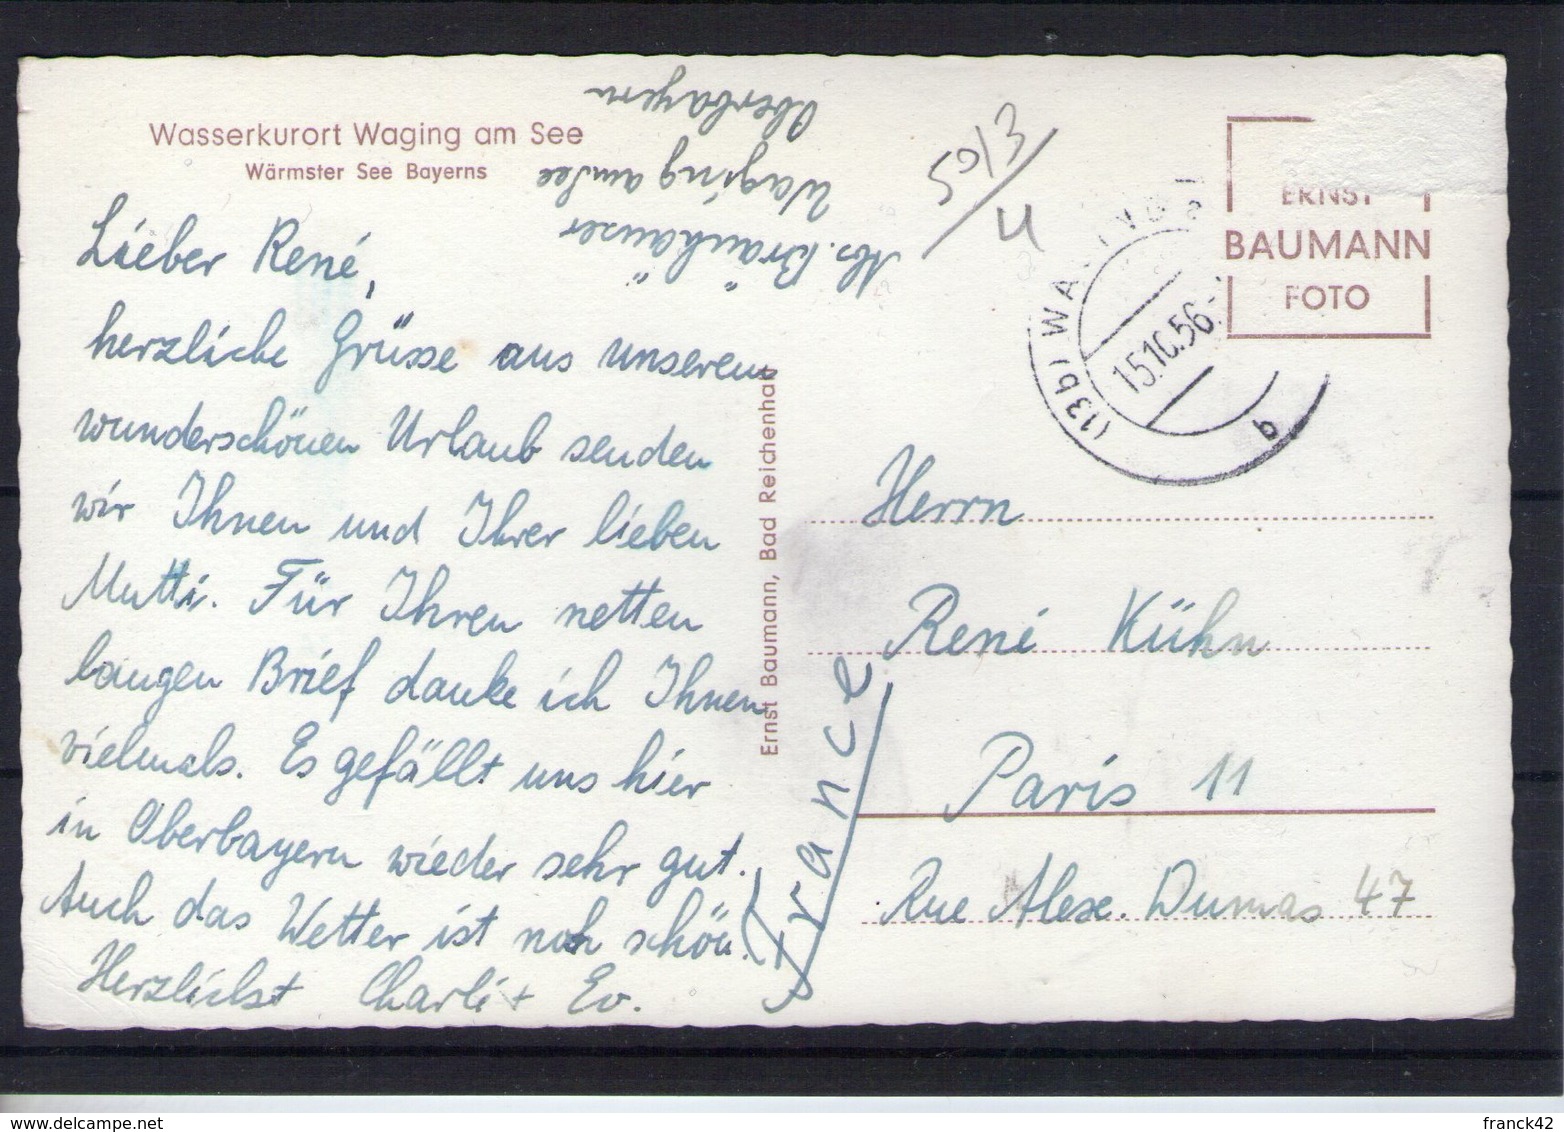 Wasserkurort Waging am See
Wärmster See Bayerns
Bräuhäuser
Waging am See
Oberbayern
Lieber René,
herzliche Grüsse aus unserem
wunderschönen Urlaub senden
wir Ihnen und Ihrer lieben
Mutti. Für Ihren netten
langen Brief danke ich Ihnen
vielmals. Es gefällt uns hier
in Oberbayern wieder sehr gut.
Auch das Wetter ist noch schön.
Herzlichst Charli + Ev.
Ernst Baumann, Bad Reichenhall
50/3
4
(13b) WAGING
15.10.56
b
ERNST
BAUMANN
FOTO
Herrn
René Kühn
Paris 11
Rue Alex. Dumas 47
France
franck42